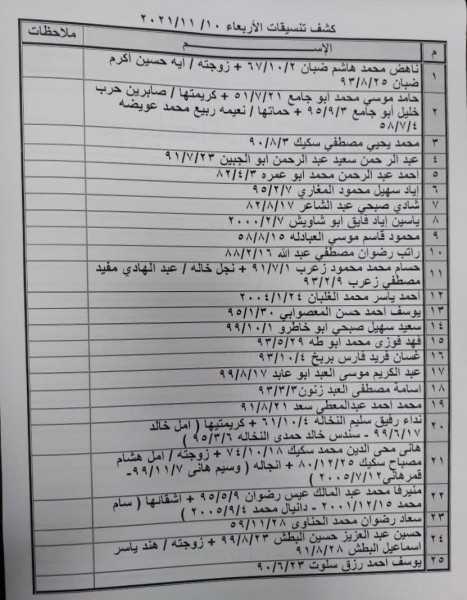 كشف تنسيقات الأربعاء ١٠/ ١١/ ٢٠٢١
م الإســـــم ملاحظات
١ ناهض محمد هاشم ضبان ٦٧/١٠/٢ + زوجته / ايه حسين اكرم
ضبان ٩٣/٨/٢٥
٢ حامد موسي محمد ابو جامع ٥١/٧/٢١ + كريمتها / صابرين حرب
خليل ابو جامع ٩٥/٩/٣ + حماتها / نعيمه ربيع محمد عويضه
٥٨/٧/٤
٣ محمد يحيي مصطفي سكيك ٩٠/٨/٣
٤ عبد الر حمن سعيد عبد الرحمن ابو الجبين ٩١/٧/٢٣
٥ احمد عبد الرحمن محمد ابو عمره ٨٢/٤/٣
٦ إياد سهيل محمود المغاري ٩٥/٢/٧
٧ شادي صبحي عبد الشاعر ٨٢/٨/١٧
٨ ياسين إياد فايق ابو شاويش ٢٠٠٠/٢/٧
٩ محمود قاسم موسي العبادله ٥٨/٨/١٥
١٠ راتب رضوان مصطفي عبد الله ٨٨/٢/١٦
١١ حسام محمد محمود زعرب ٩١/٧/١ + نجل خاله / عبد الهادي مفيد
مصطفي زعرب ٩٣/٢/٩
١٢ احمد ياسر محمد الغلبان ٢٠٠٤/١/٢٤
١٣ يوسف احمد حسن المعصوابي ٩٥/١/٣٠
١٤ سعيد سهيل صبحي ابو خاطرو ٩٩/١٠/١
١٥ فهد فوزى محمد ابو طه ٩٣/٥/٢٩
١٦ غسان فريد فارس بريخ ٩٣/١٠/٤
١٧ عبد الكريم موسى العبد ابو عابد ٩٩/٨/١٧
١٨ اسامة مصطفى العبد زنون٩٣/٣/٣
١٩ محمد احمد عبدالمعطي سعد ٩١/٨/٢١
٢٠ نداء رفيق سليم النخاله ٦١/١٠/٤ + كريمتيها ( امل خالد
٩٩/٦/١٧ - سندس خالد حمدى النخاله ٩٥/٣/٦ )
٢١ هانى محى الدين محمد سكيك ٧٤/١٠/١٨ + زوجته / امل هشام
مصباح سكيك ٨٠/١٢/٢٥ + انجاله ( وسيم هانى ٩٩/١١/٧-
قمرهانى ٢٠٠٥/٧/١٢)
٢٢ منيرفا محمد عبد المالك عيس رضوان ٩٥/٥/٩ + اشقائها ( سام
محمد ٢٠٠١/١٢/١٥ - دانيال محمد ٢٠٠٥/٩/٤ )
٢٣ سعاد رضوان محمد الحناوى ٥٩/١١/٢٨
٢٤ حسين عبد العزيز حسين البطش ٩٩/٨/٢٣ + زوجته / هند ياسر
اسماعيل البطش ٩١/٨/٢٨
٢٥ يوسف احمد رزق سلوت ٩٠/٦/٢٣